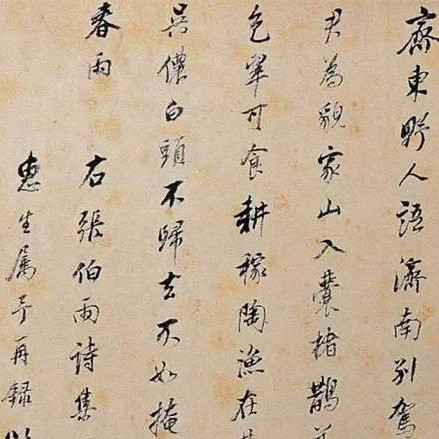 齊東野人語濟南別駕
君為貌家山入囊楮鵲
色翠可食耕稼陶漁在
吳儂白頭不歸去不如掩
春雨
右張伯雨詩集
惠生属予再録